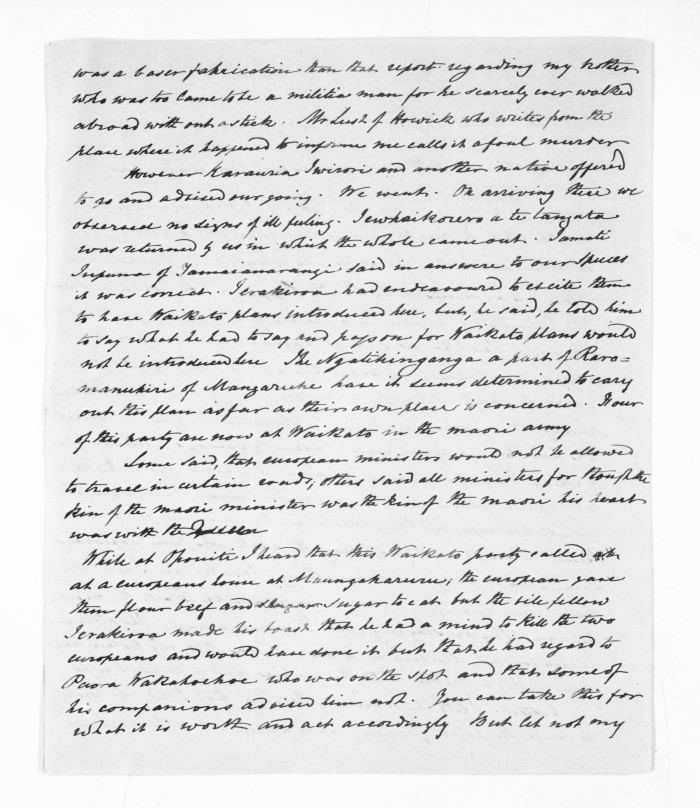 was a baser fabrication than that report regarding my brother
who was too lame to be a militia man for he scarcely ever walked
abroad with out a stick. Mr Lush of Howick who writes from the
place where it happened to inform me calls it a foul murder
However Karauria and another native offer'd
to go and advised our going. We went. On arriving there we
observed no signs of ill feeling. Tewhaikorero a te tangata
was returned by us in which the whole came out. Tamati
of said in answere to our Speees
it was correct. Terakiroa had endeavoured to excite them
to have Waikato plans introduced here, but, he said, he told him
to say what he had to say and pass on for Waikato plans would
not be introduced here The Ngatihinganga a part of Raro=
manukiri of have it seems determined to cary
out this plan as far as their own place is concerned. Four
of this party are now at Waikato in the maori army
Some said, that european ministers would not be allowed
to travel in certain roads; others said all ministers for though the
skin of the maori minister was the skin of the maori his heart
was with the
While at Opouiti I heard that this Waikato party called
at a europeans house at Maungaharuru; the european gave
them flour beef and sugar to eat but the vile fellow
Terakiroa made his boast that he had a mind to kill the two
europeans and would have done it but that he had regard to
Paora who was on the spot and that some of
his companions advised him not. You can take this for
what it is worth and act accordingly But let not my